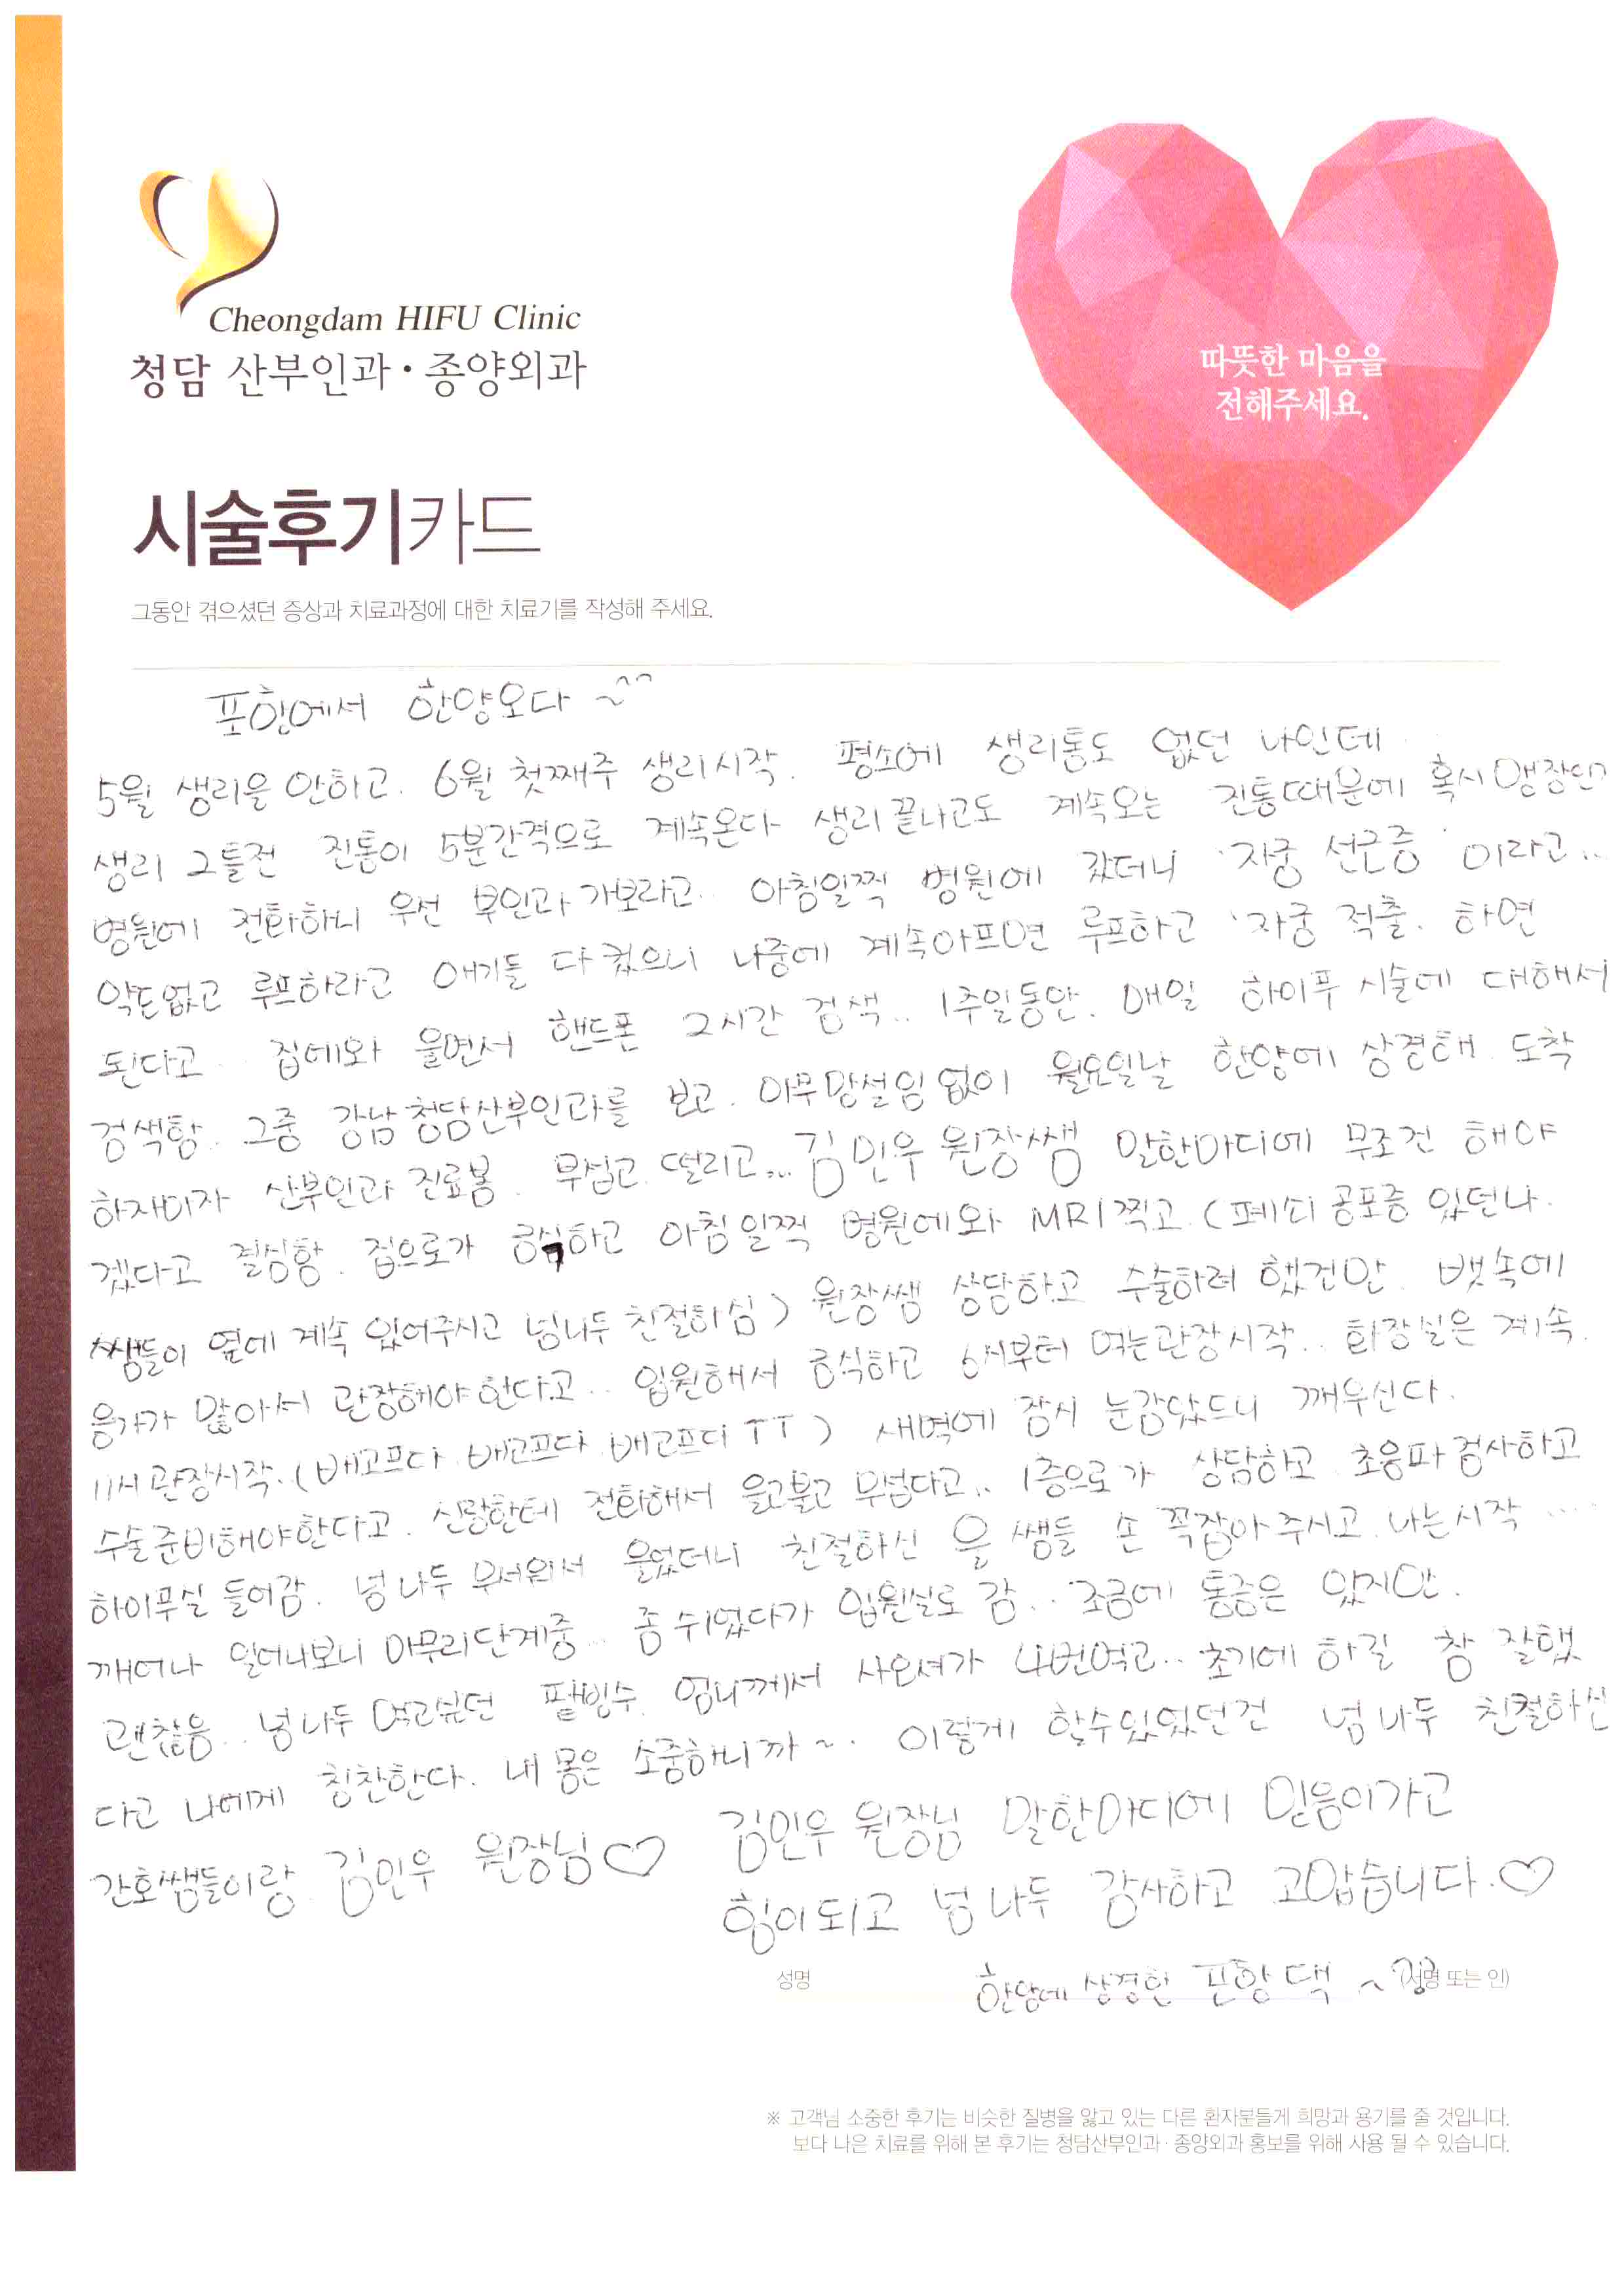 Cheongdam HIFU Clinic
청담 산부인과·종양외과
따뜻한 마음을
전해주세요.
시술후기카드
그동안 겪으셨던 증상과 치료과정에 대한 치료기를 작성해 주세요.
포항에서 한양오다 ~^^
5월 생리은 안하고. 6월 첫째주 생리시작. 평소에 생리통도 없던 나인데
생리 그틀전 진통이 5분간격으로 계속온다 생리끝나고도 계속오는 진통때문에 혹시 맹장인가
병원에 전화하니 우선 부인과 가보라고.. 아침일찍 병원에 갔더니 '자궁 선근증' 이라고..
약도없고 루프하라고 애기들 다 컸으니 나중에 계속아프면 루프하고 '자궁 적출. 하면
된다고. 집에와 울면서 핸드폰 2시간 검색.. 1주일동안. 매일 하이푸 시술에 대해서
검색함. 그중 강남 청담산부인과를 보고. 아무망설임 없이 월요일날 한양에 상경해. 도착
하자마자 산부인과 진료봄. 무섭고 떨리고... 김민우 원장쌤 말한마디에 무조건 해야
겠다고 결심함. 집으로가 금식하고 아침일찍 병원에와 MRI찍고 (폐쇠공포증 있던나.
쌤들이 옆에 계속 있어주시고 넘나두 친절하심) 원장쌤 상담하고 수술하려 했건만. 뱃속에
응가가 많아서 관장해야 한다고.. 입원해서 금식하고 6시부터 먹는관장시작.. 화장실은 계속.
11시 관장시작. (배고프다. 배고프다. 배고프다 ㅜㅜ) 새벽에 잠시 눈감았드니 깨우신다.
수술준비해야한다고. 신랑한테 전화해서 울고불고 무섭다고.. 1층으로가 상담하고. 초음파검사하고
하이푸실 들어감. 넘나두 무서워서 울었더니 친절하신 쌤들 손 꼭잡아주시고. 나는시작....
깨어나 일어나보니 마무리단계중.. 좀 쉬었다가 입원실로 감.. 조금에 통증은 있지만.
괜찮음.. 넘나두 먹고싶던 팥빙수. 엄니께서 사오셔가 4번먹고.. 초기에 하길 참 잘했
다고 나에게 칭찬한다. 내 몸은 소중하니까~. 이렇게 할수있었던건 넘나두 친절하신
간호쌤들이랑 김민우 원장님♡ 김민우 원장님 말한마디에 믿음이가고
힘이되고 넘나두 감사하고 고맙습니다.♡
성명 한양에 상경한 포항댁~ (서명 또는 인)
※ 고객님 소중한 후기는 비슷한 질병을 앓고 있는 다른 환자분들게 희망과 용기를 줄 것입니다.
보다 나은 치료를 위해 본 후기는 청담산부인과·종양외과 홍보를 위해 사용 될 수 있습니다.